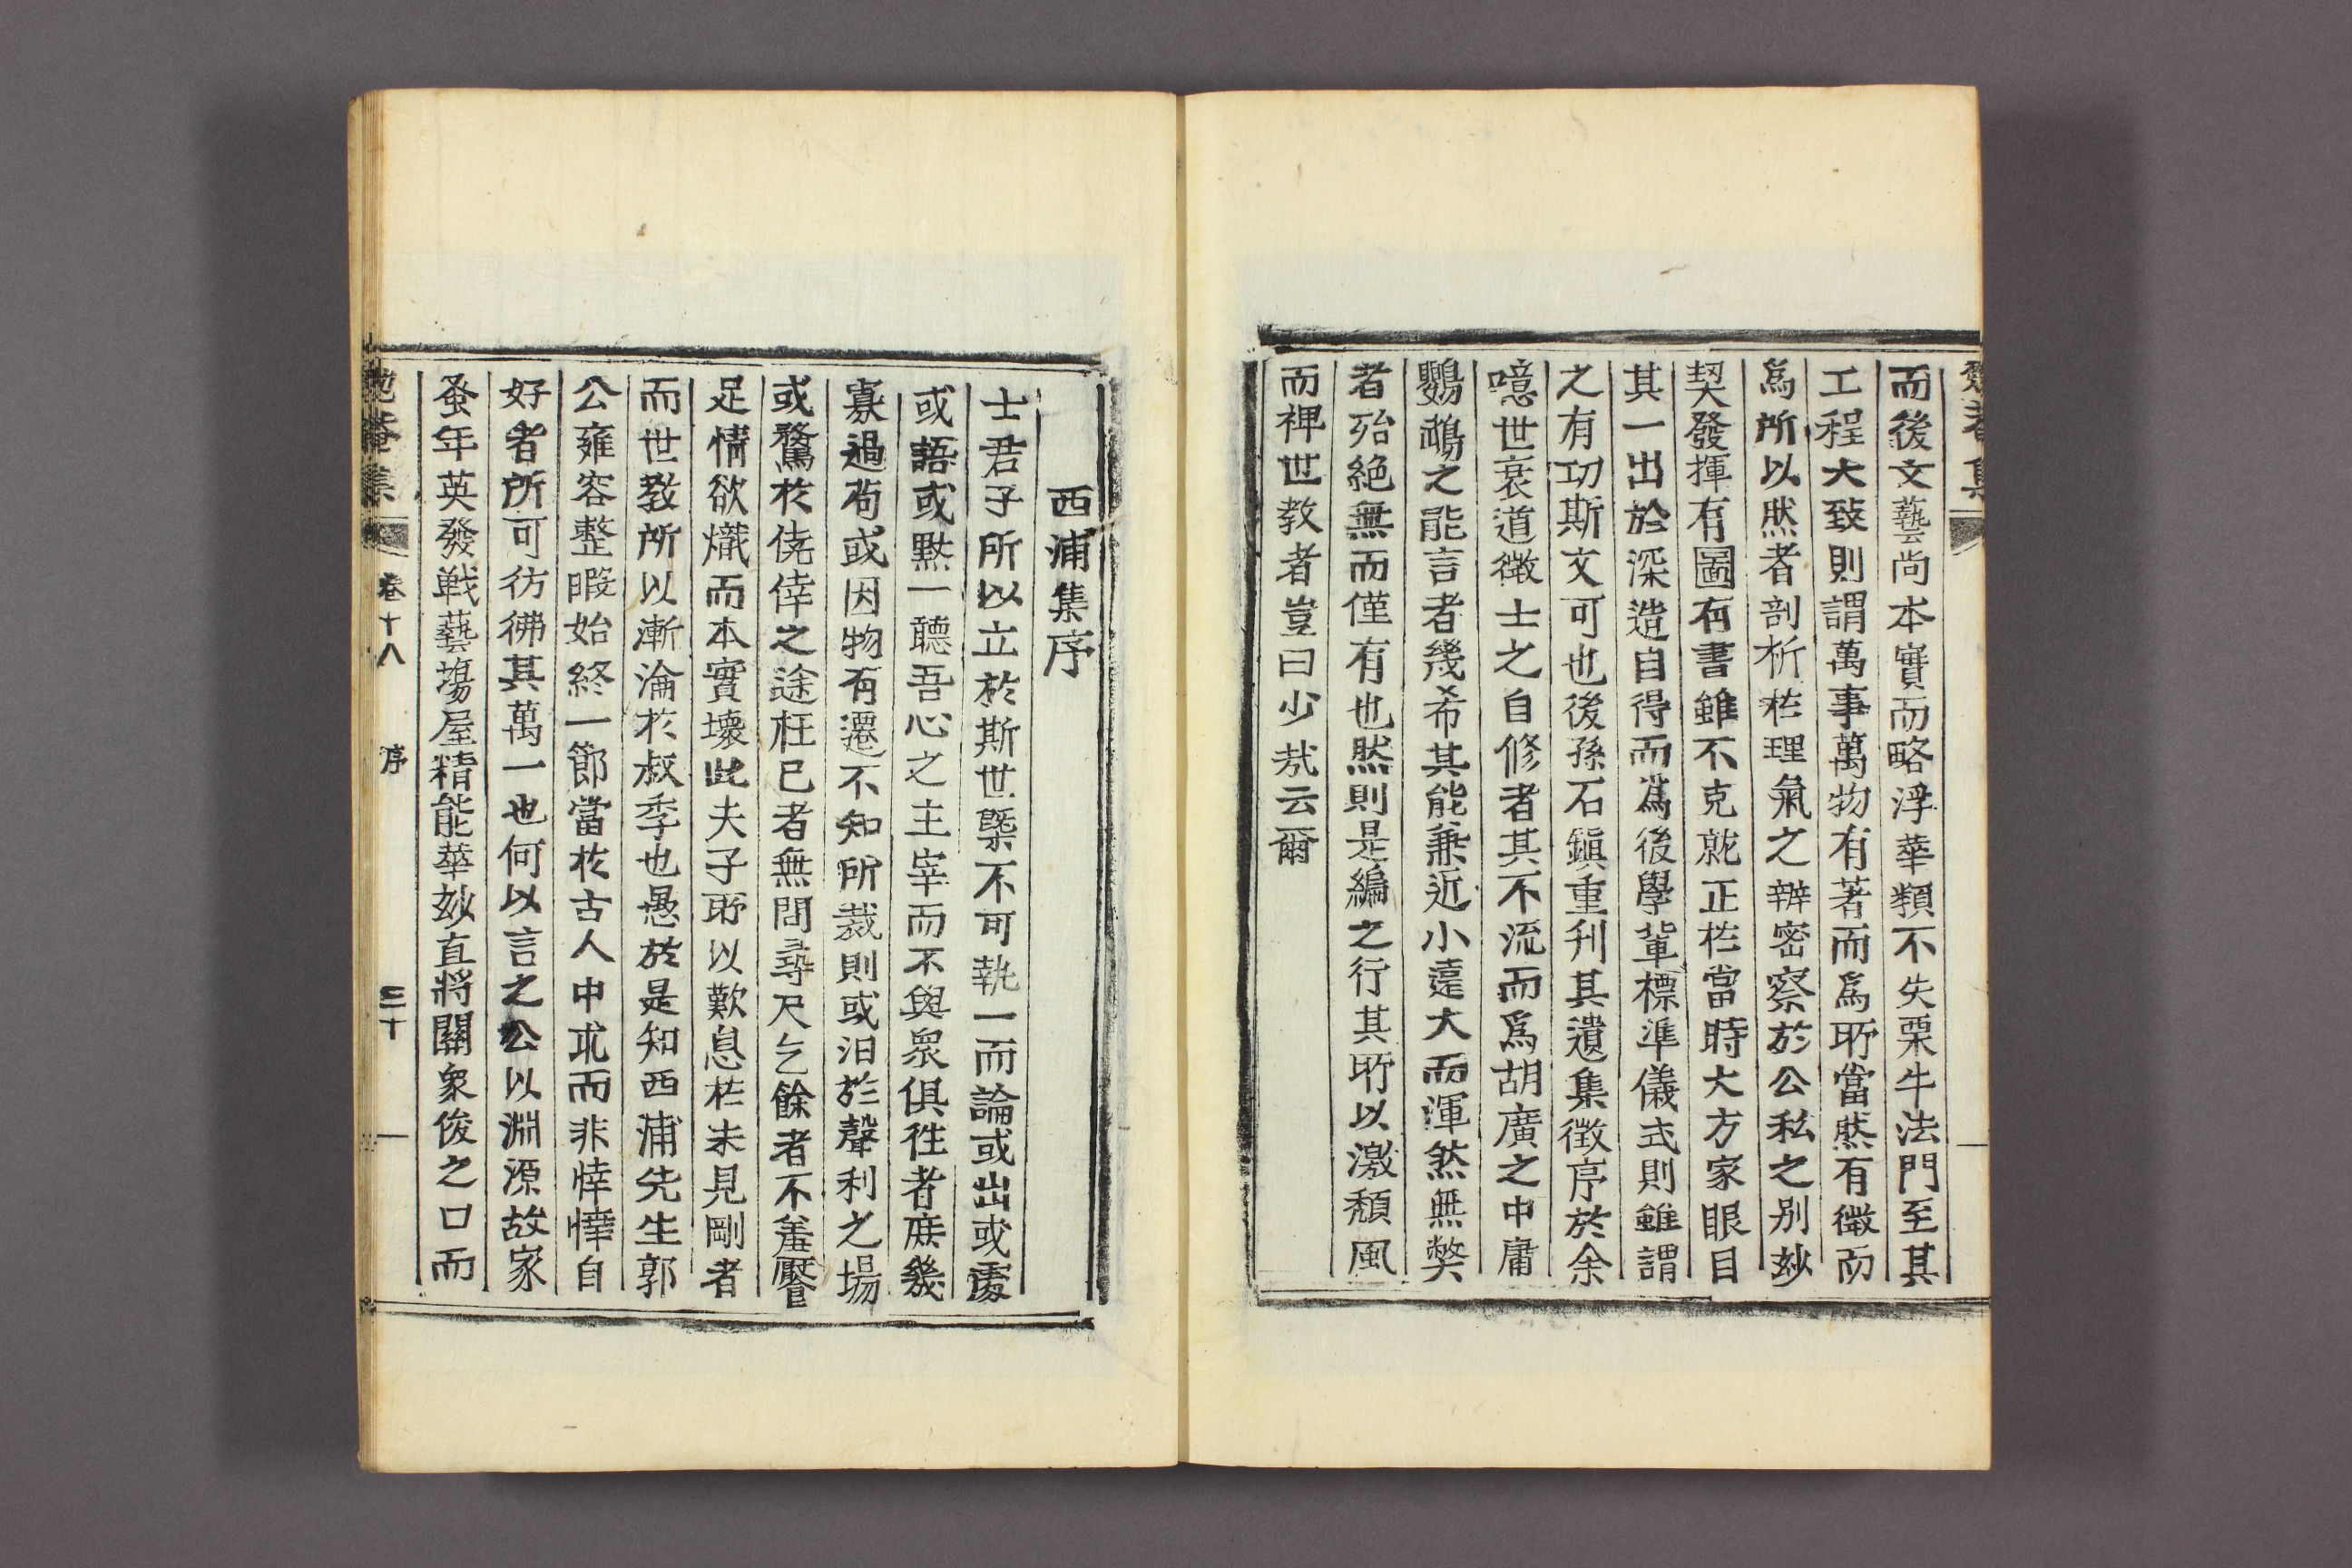 而後文藝尚本實而略浮華類不失栗牛法門至其
工程大致則謂萬事萬物有著而爲所當然有微而
爲所以然者剖析於理氣之辨密察於公私之別妙
契發揮有圖有書雖不克就正於當時大方家眼目
其一出於深造自得而爲後學軰標準儀式則雖謂
之有功斯文可也後孫石鎭重刊其遺集徵序於余
噫世衰道微士之自修者其不流而爲胡廣之中庸
鸚鵡之能言者幾希其能兼近小遠大而渾然無獘
者殆絶無而僅有也然則是編之行其所以激頹風
而裨世教者豈曰少㢤云爾
西浦集序
士君子所以立於斯世槩不可執一而論或出或處
或語或默一聽吾心之主宰而不與衆俱徃者庶幾
寡過苟或因物有遷不知所裁則或汩於聲利之場
或騖於僥倖之途枉己者無問尋尺乞餘者不羞饜
足情欲熾而本實壞此夫子所以歎息於未見剛者
而世教所以漸淪於叔季也愚於是知西浦先生郭
公雍容整暇始終一節當於古人中求而非悻悻自
好者所可彷彿其萬一也何以言之公以淵源故家
蚤年英發戰藝塲屋精能華妙直將關衆俊之口而
卷十八
序
三十